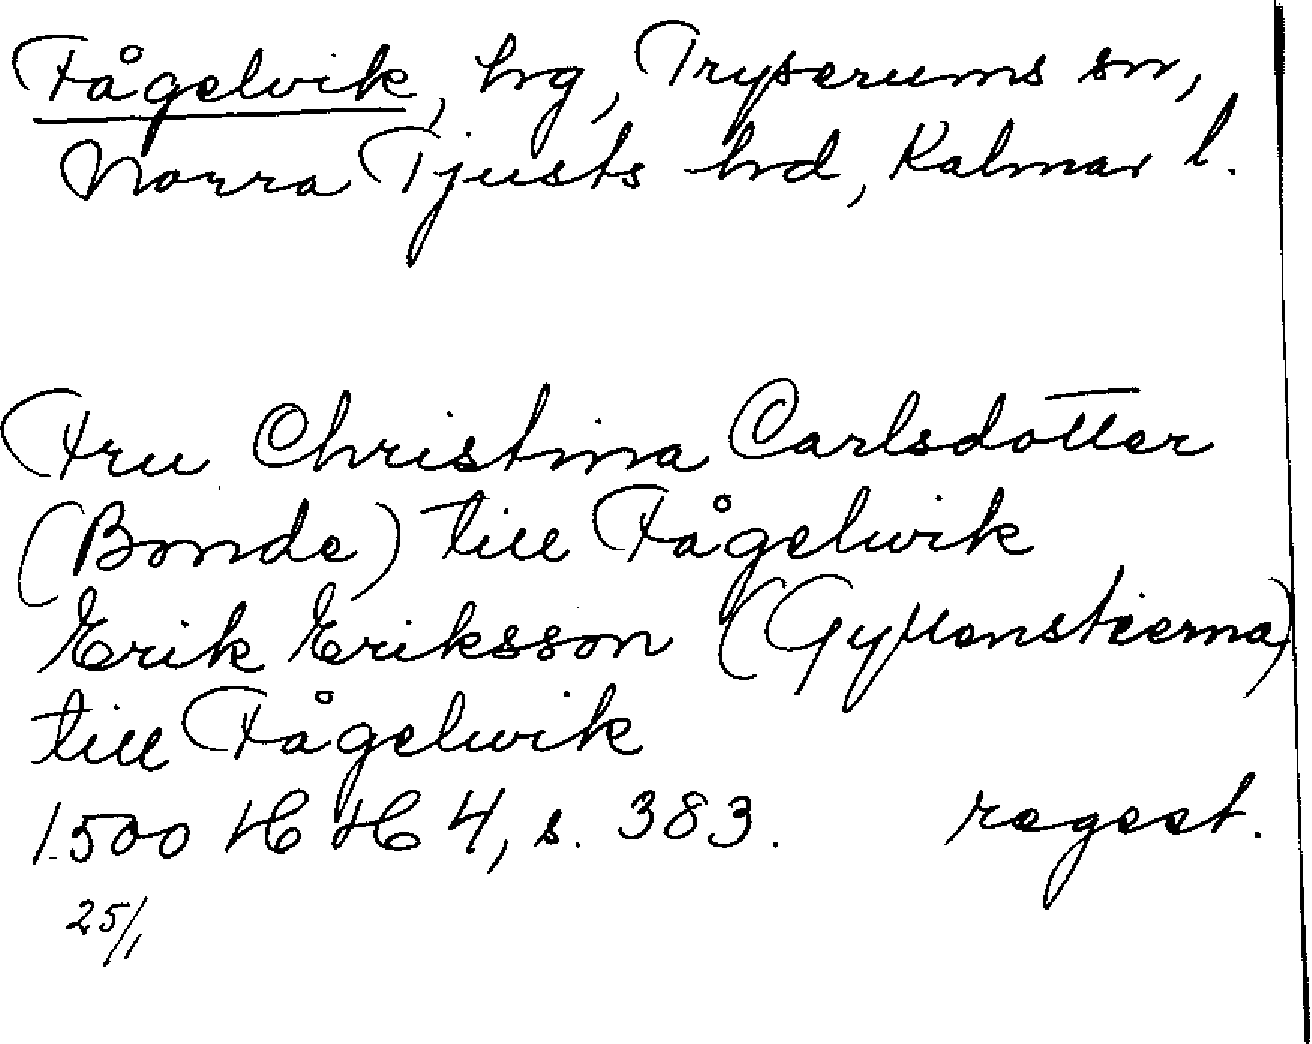 Fågelvik, hrg, Tryserums sn,
Norra Tjusts hrd, Kalmar l.
Fru Christina Carlsdotter
(Bonde) till Fågelwik
Erik Eriksson (Gyllenstierna)
till Fågelwik
1500 HH 4, s. 383. regest.
25/1